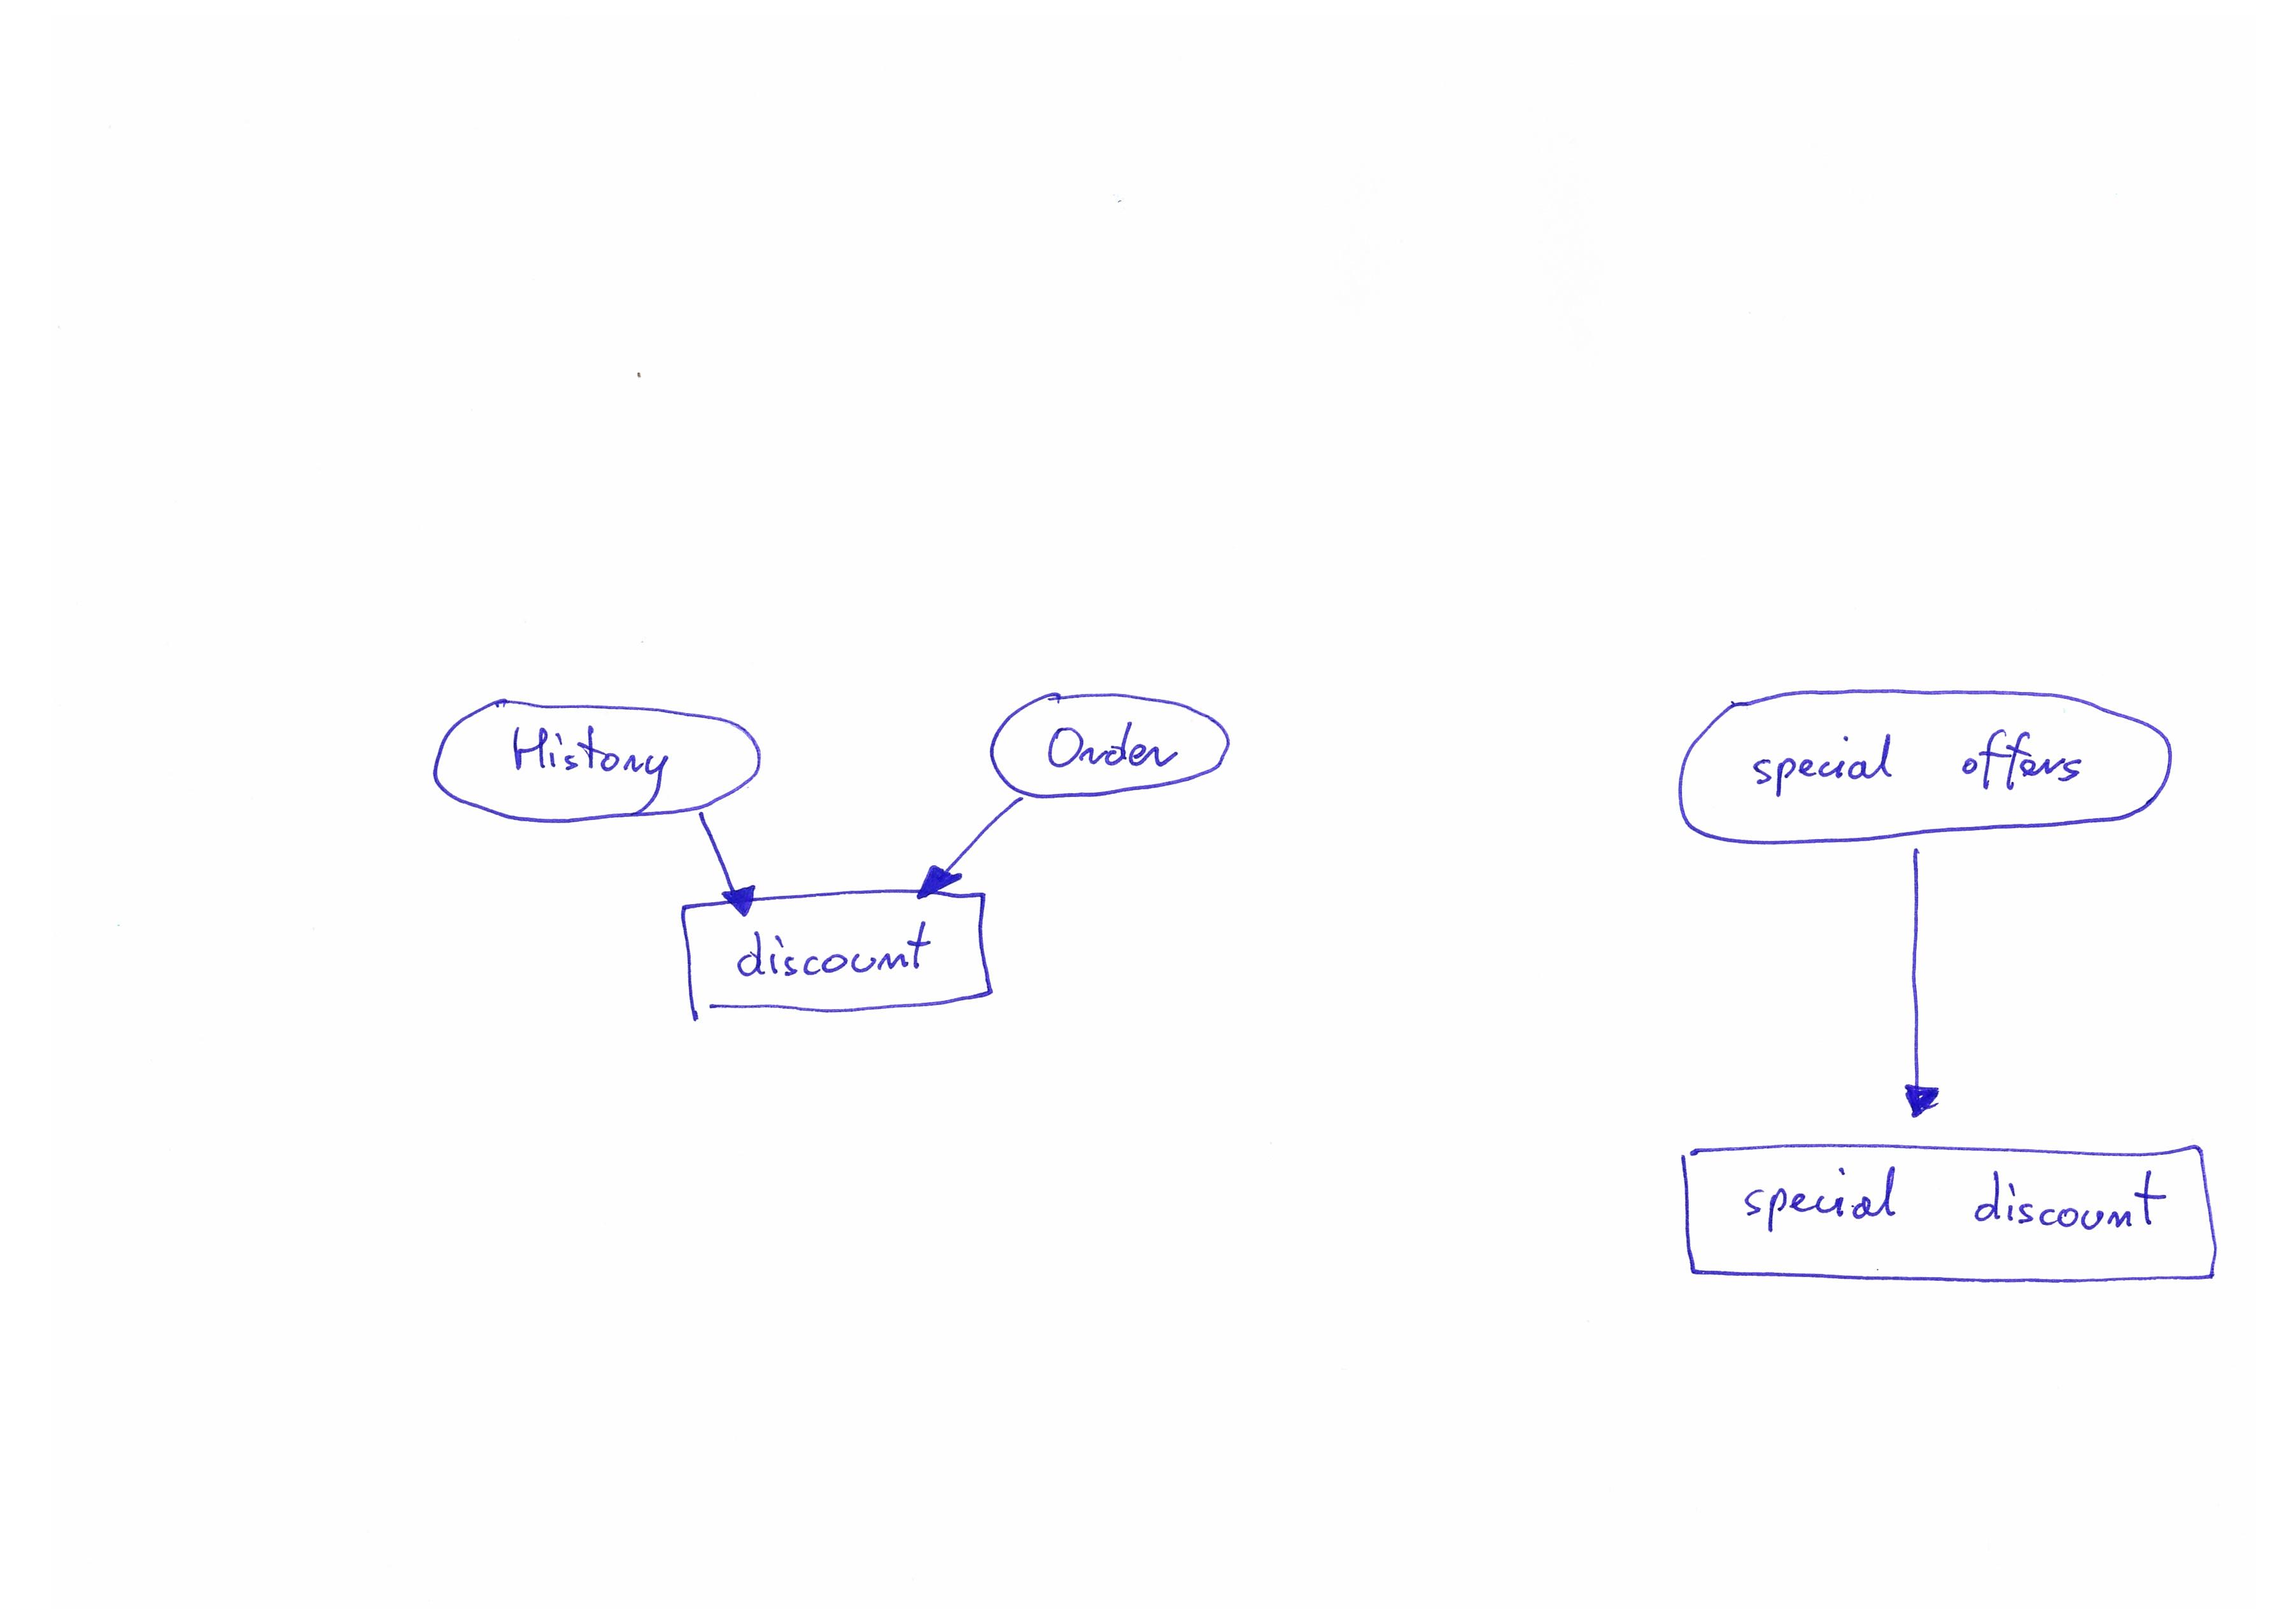 History
Order
discount
special offers
special discount